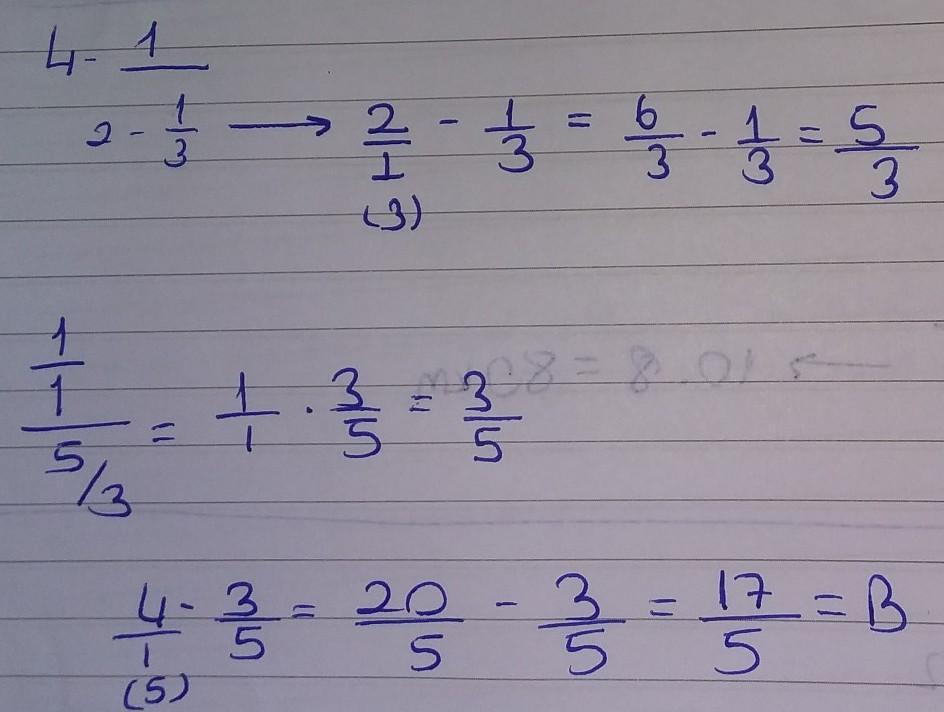 4 - 1
2 - 1/3 → 2/1 (3) - 1/3 = 6/3 - 1/3 = 5/3
1/1 / 5/3 = 1/1 · 3/5 = 3/5
4/1 (5) - 3/5 = 20/5 - 3/5 = 17/5 = B